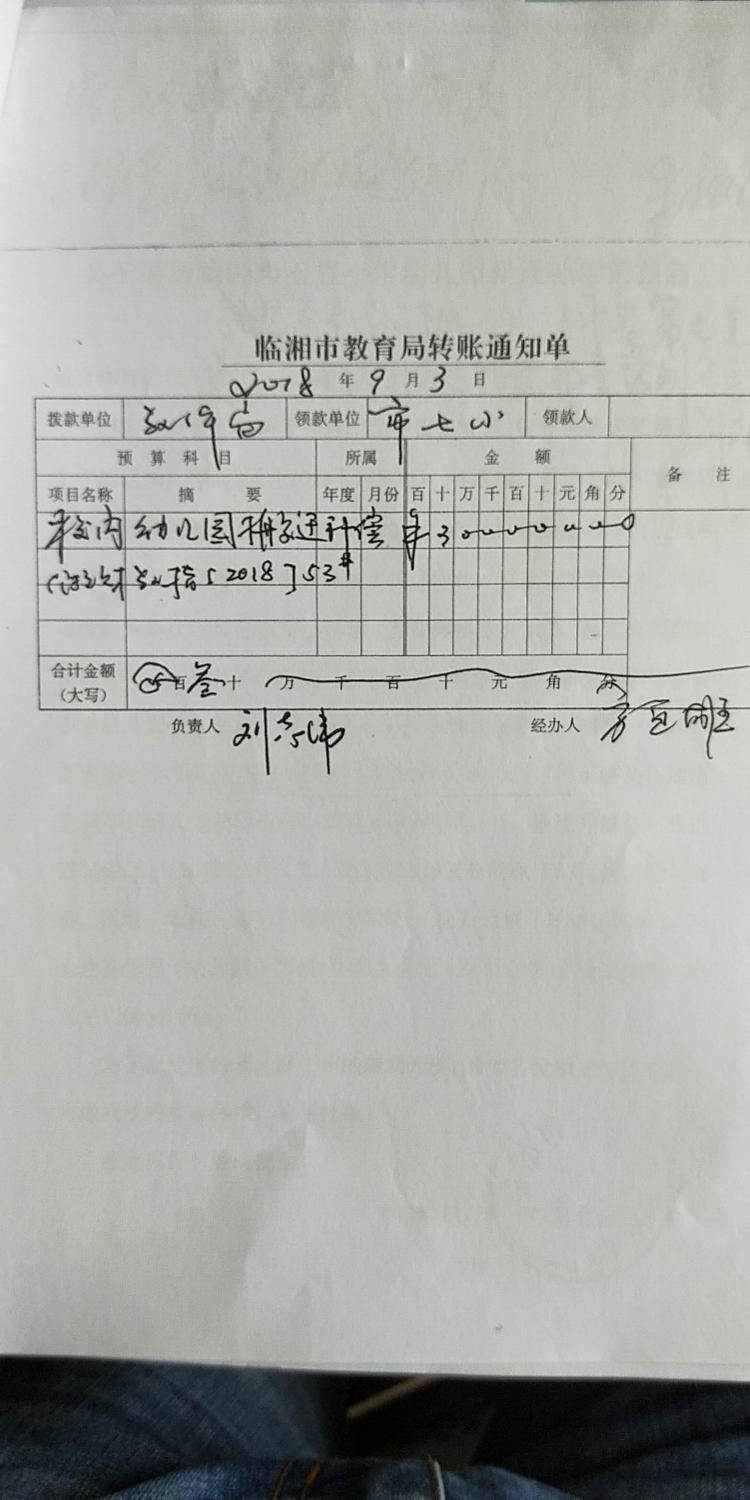 临湘市教育局转账通知单
2018 年 9 月 3 日
拨款单位 领款单位 市七小 领款人
预算科目 所属 金额 备注
项目名称 摘要 年度 月份 百 十 万 千 百 十 元 角 分
校内幼儿园搬迁补偿 ¥ 3 0 0 0 0 0 0 0
教指[2018]53#
合计金额（大写） 百 叁 十 万 千 百 十 元 角 分
负责人 刘 伟 经办人 方